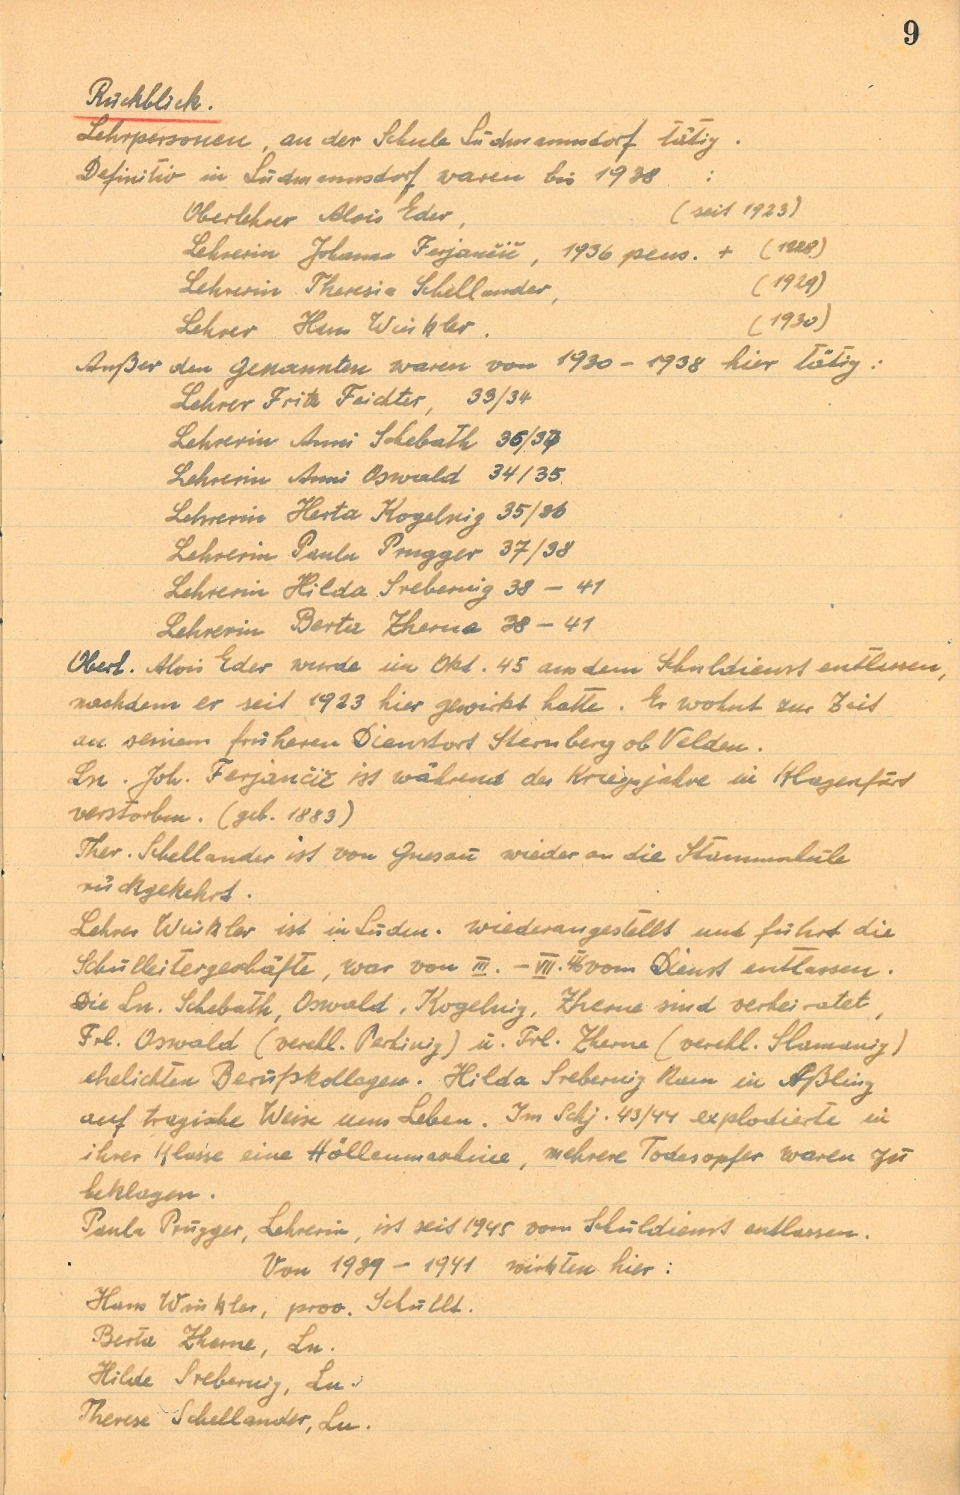 9
Rückblick.
Lehrpersonen, an der Schule Ludmannsdorf tätig.
Definitiv in Ludmannsdorf waren bis 1938 :
Oberlehrer Alois Eder, (seit 1923)
Lehrerin Johanna Ferjančič, 1936 pens. + (1928)
Lehrerin Theresia Schellander, (1929)
Lehrer Hans Winkler. (1930)
Außer den genannten waren von 1930 - 1938 hier tätig:
Lehrer Fritz Feichter, 33/34
Lehrerin Anni Schebath 36/37
Lehrerin Anni Oswald 34/35
Lehrerin Herta Kogelnig 35/36
Lehrerin Paula Prugger 37/38
Lehrerin Hilda Srebernig 38 - 41
Lehrerin Berta Zherne 38 - 41
Oberl. Alois Eder wurde im Okt. 45 aus dem Schuldienst entlassen,
nachdem er seit 1923 hier gewirkt hatte. Er wohnt zur Zeit
an seinem früheren Dienstort Sternberg ob Velden.
Ln. Joh. Ferjančič ist während der Kriegsjahre in Klagenfurt
verstorben. (geb. 1883)
Ther. Schellander ist von Gnesau wieder an die Stammschule
rückgekehrt.
Lehrer Winkler ist in Ludm. wiederangestellt und führt die
Schulleitergeschäfte, war von III. - VII. 46 vom Dienst entlassen.
Die Ln. Schebath, Oswald, Kogelnig, Zherne sind verheiratet,
Frl. Oswald (verehl. Pertinig) u. Frl. Zherne (verehl. Slamanig)
ehelichten Berufskollegen. Hilda Srebernig kam in Aßling
auf tragische Weise ums Leben. Im Schj. 43/44 explodierte in
ihrer Klasse eine Höllenmaschine, mehrere Todesopfer waren zu
beklagen.
Paula Prugger, Lehrerin, ist seit 1945 vom Schuldienst entlassen.
Von 1939 - 1941 wirkten hier:
Hans Winkler, prov. Schullt.
Berta Zherne, Ln.
Hilde Srebernig, Ln.
Therese Schellander, Ln.